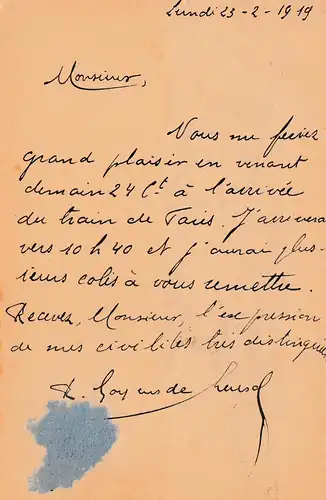 Lundi 23-2-1919
Monsieur,
Vous me feriez
grand plaisir en venant
demain 24 Ct à l'arrivée
du train de Paris. J'arriverai
vers 10 h 40 et j'aurai plus-
ieurs colis à vous remettre.
Recevez, Monsieur, l'expression
de mes civilités très distinguées
de